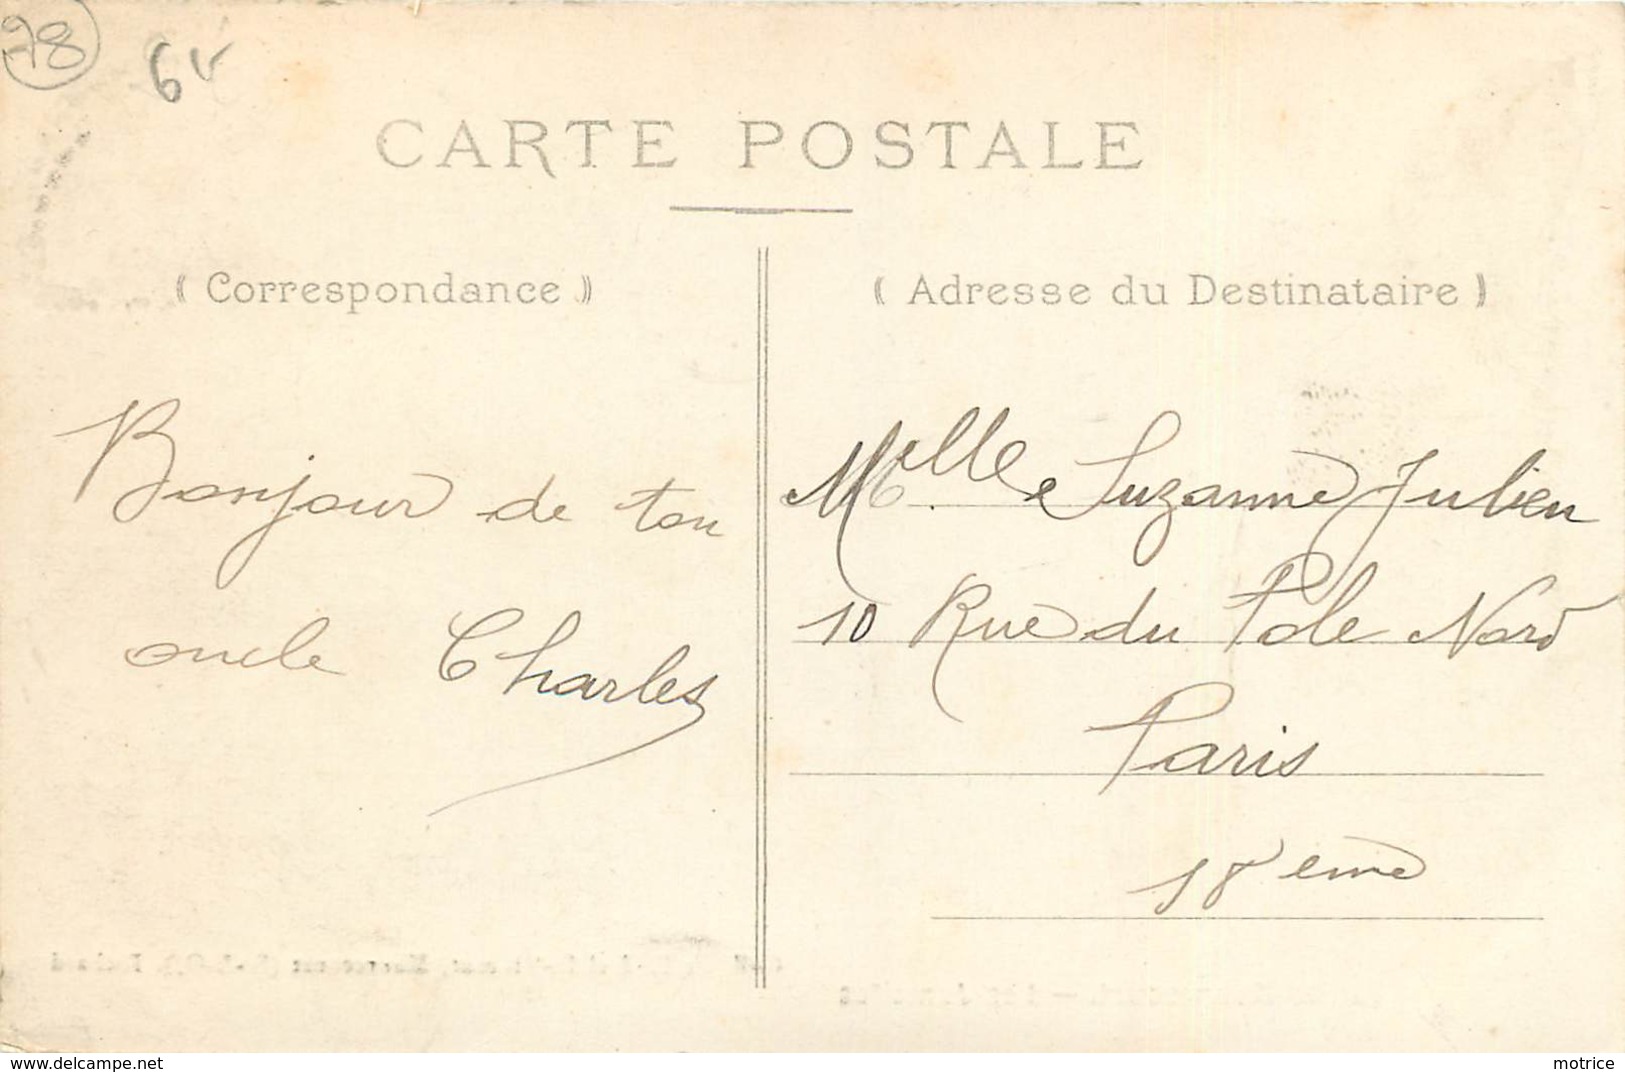 78
CARTE POSTALE
( Correspondance )
( Adresse du Destinataire )
Bonjour de ton
oncle Charles
Melle Suzanne Julien
10 Rue du Pole Nord
Paris
18 eme
www.delcampe.net
motrice